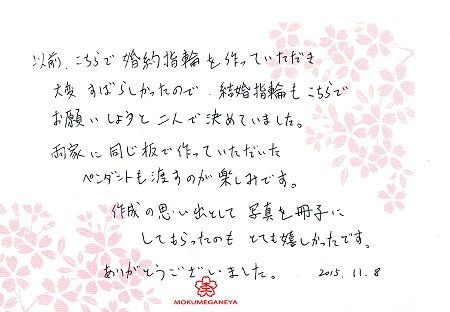 以前、こちらで婚約指輪を作っていただき
大変すばらしかったので、結婚指輪もこちらで
お願いしようと二人で決めていました。
両家に同じ板で作っていただいた
ペンダントも渡すのが楽しみです。
作成の思い出として写真を冊子に
してもらったのもとても嬉しかったです。
ありがとうございました。 2015.11.8
MOKUMEGANEYA